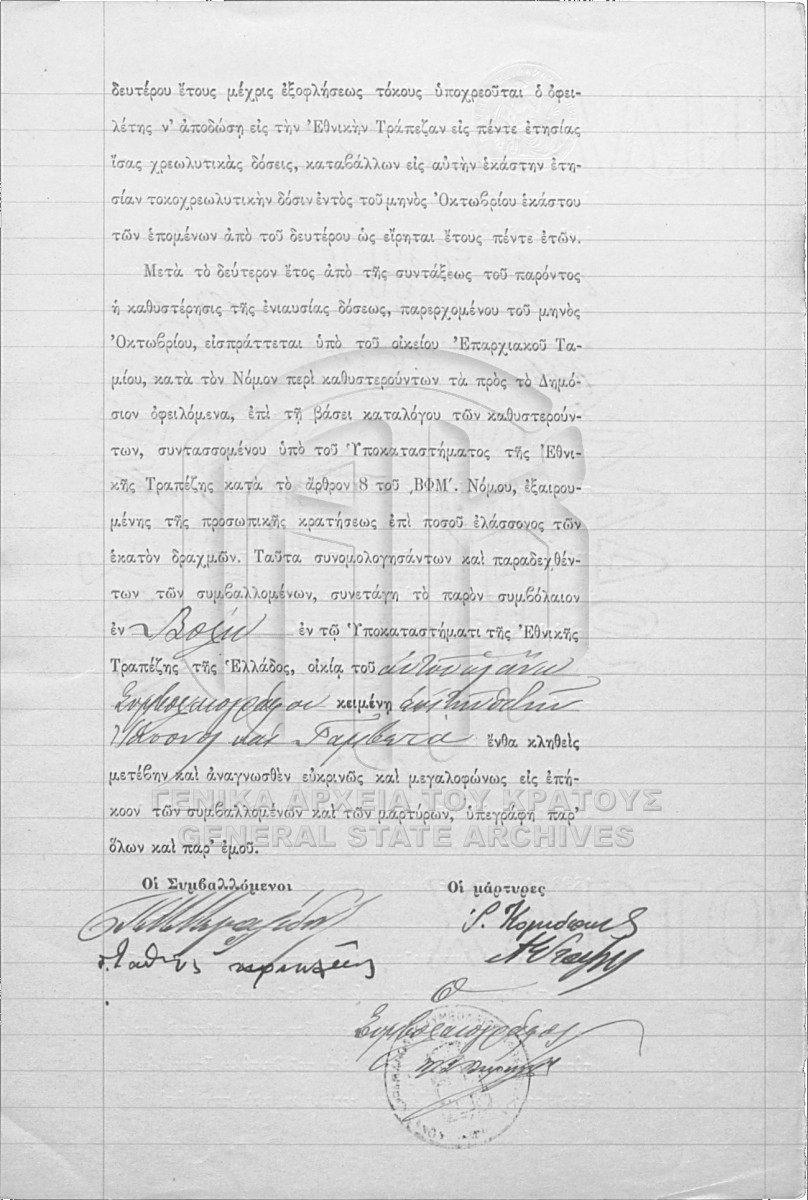 δευτέρου ἔτους μέχρις ἐξοφλήσεως τόκους ὑποχρεοῦται ὁ ὀφει-
λέτης ν' ἀποδώσῃ εἰς τὴν Ἐθνικὴν Τράπεζαν εἰς πέντε ἐτησίας
ἴσας χρεωλυτικὰς δόσεις, καταβάλλων εἰς αὐτὴν ἑκάστην ἐτη-
σίαν τοκοχρεωλυτικὴν δόσιν ἐντὸς τοῦ μηνὸς Ὀκτωβρίου ἑκάστου
τῶν ἑπομένων ἀπὸ τοῦ δευτέρου ὡς εἴρηται ἔτους πέντε ἐτῶν.
Μετὰ τὸ δεύτερον ἔτος ἀπὸ τῆς συντάξεως τοῦ παρόντος
ἡ καθυστέρησις τῆς ἐνιαυσίας δόσεως, παρερχομένου τοῦ μηνὸς
Ὀκτωβρίου, εἰσπράττεται ὑπὸ τοῦ οἰκείου Ἐπαρχιακοῦ Τα-
μίου, κατὰ τὸν Νόμον περὶ καθυστερούντων τὰ πρὸς τὸ Δημό-
σιον ὀφειλόμενα, ἐπὶ τῇ βάσει καταλόγου τῶν καθυστερούν-
των, συντασσομένου ὑπὸ τοῦ Ὑποκαταστήματος τῆς Ἐθνι-
κῆς Τραπέζης κατὰ τὸ ἄρθρον 8 τοῦ ͵ΒΦΜ΄. Νόμου, ἐξαιρου-
μένης τῆς προσωπικῆς κρατήσεως ἐπὶ ποσοῦ ἐλάσσονος τῶν
ἑκατὸν δραχμῶν. Ταῦτα συνομολογησάντων καὶ παραδεχθέν-
των τῶν συμβαλλομένων, συνετάγη τὸ παρὸν συμβόλαιον
ἐν Βόλῳ ἐν τῷ Ὑποκαταστήματι τῆς Ἐθνικῆς
Τραπέζης τῆς Ἑλλάδος, οἰκίᾳ τοῦ
Συμβολαιογράφου κειμένῃ
καὶ ἔνθα κληθεὶς
μετέβην καὶ ἀναγνωσθὲν εὐκρινῶς καὶ μεγαλοφώνως εἰς ἐπή-
κοον τῶν συμβαλλομένων καὶ τῶν μαρτύρων, ὑπεγράφη παρ'
ὅλων καὶ παρ' ἐμοῦ.
ΓΕΝΙΚΑ ΑΡΧΕΙΑ ΤΟΥ ΚΡΑΤΟΥΣ
GENERAL STATE ARCHIVES
Οἱ Συμβαλλόμενοι Οἱ μάρτυρες
Ὁ
Συμβολαιογράφος